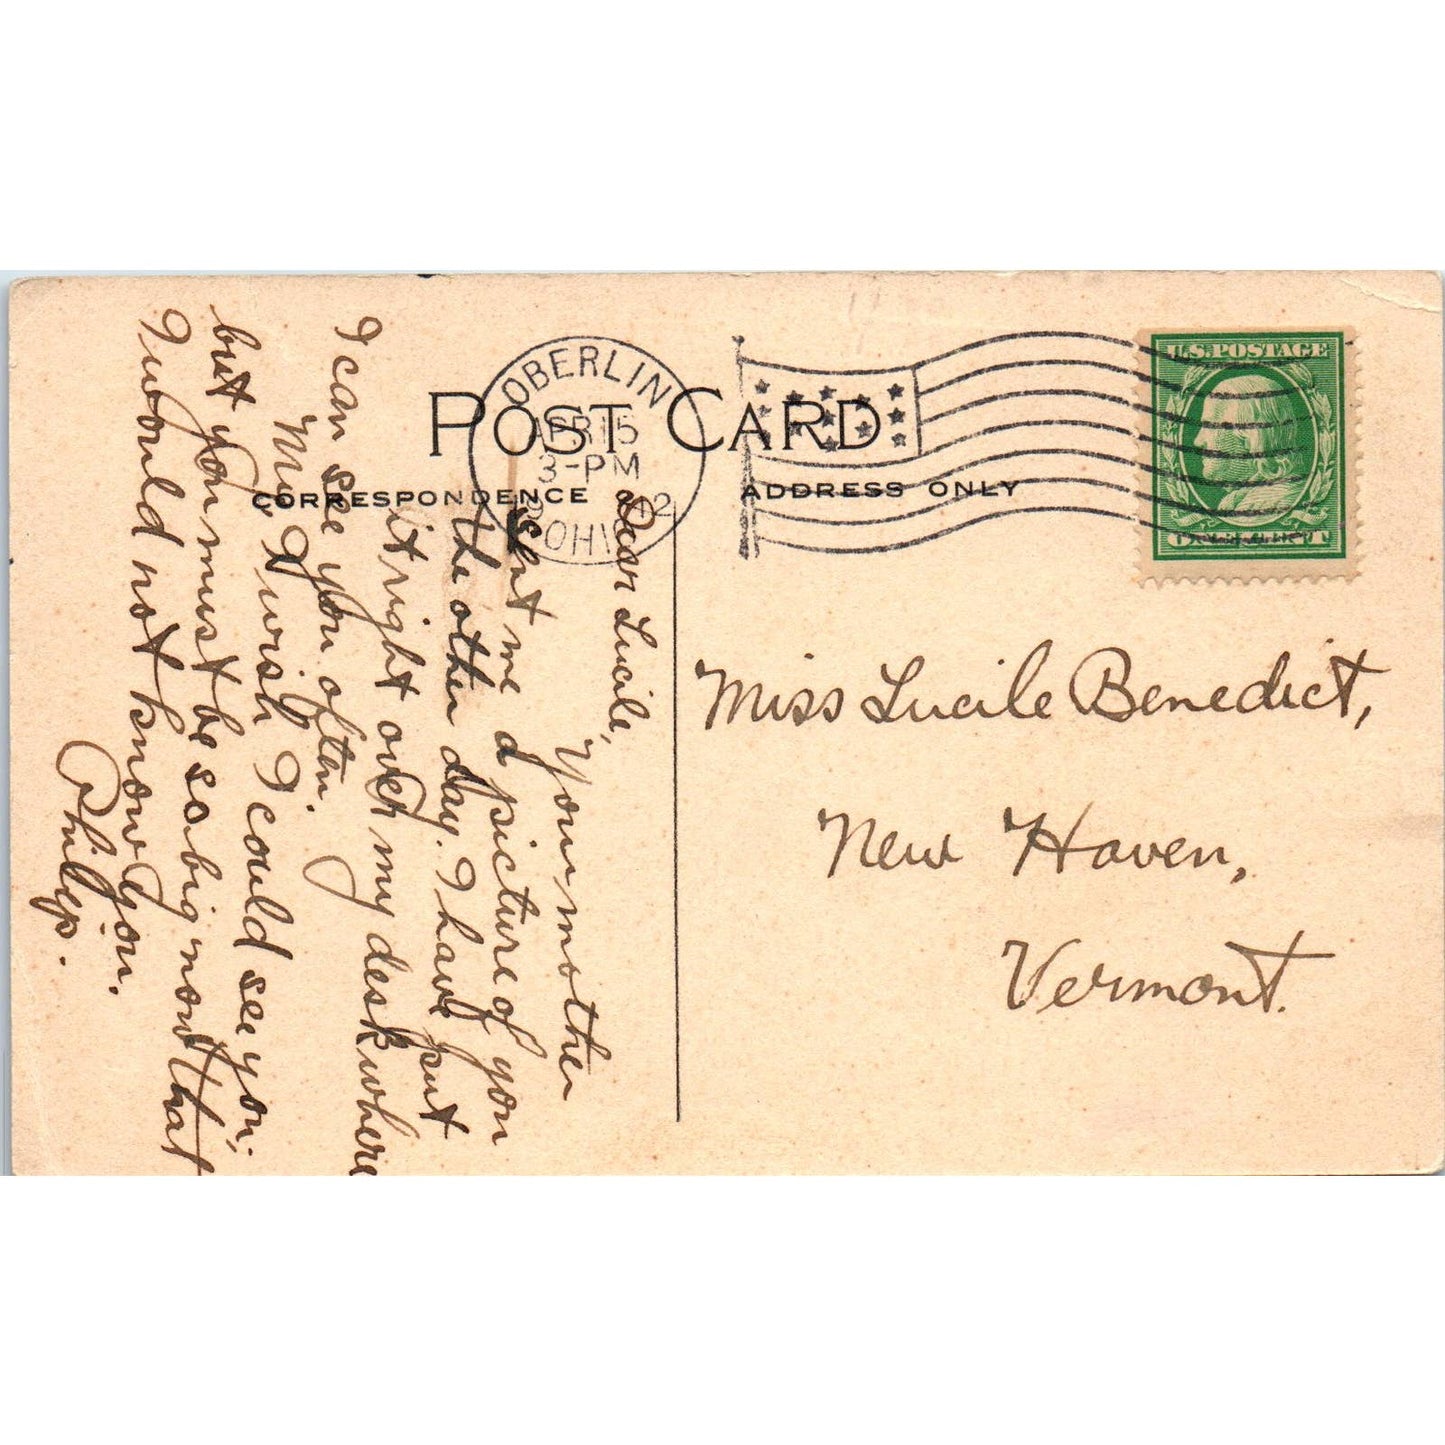 POST CARD
CORRESPONDENCE
ADDRESS ONLY
OBERLIN
APR 15
3-PM
OHIO
U.S. POSTAGE
Dear Lucile,
Your mother
sent me a picture of you
the other day. I have put
it right over my desk where
I can see you often.
My, I wish I could see you;
but you must be so big now that
I would not know you.
Philip.
Miss Lucile Benedict,
New Haven,
Vermont.